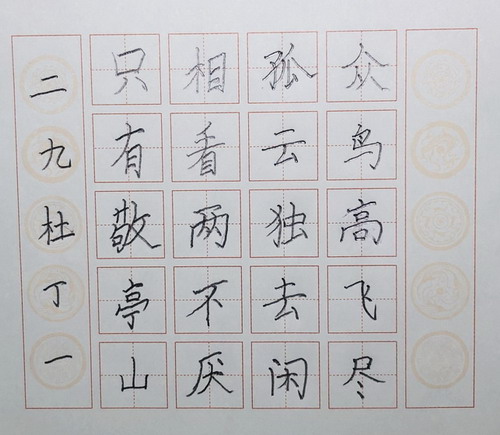 众鸟高飞尽
孤云独去闲
相看两不厌
只有敬亭山
二九杜丁一